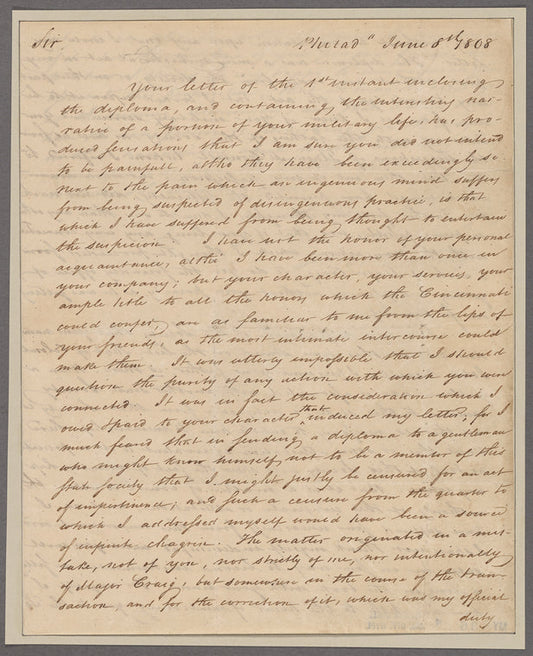 Sir, Philad.ª June 8th 1808
Your letter of the 1st instant inclosing
the diploma, and containing, the interesting nar-
rative of a portion of your military life, has pro-
duced sensations that I am sure you did not intend
to be painfull, altho they have been exceedingly so.
next to the pain which an ingenuous mind suffers
from being suspected of disingenuous practice, is that
which I have suffered from being thought to entertain
the suspicion. I have not the honor of your personal
acquaintance, altho' I have been more than once in
your company; but your character, your services, your
ample title to all the honors which the Cincinnati
could confer, are as familiar to me from the lips of
your friends, as the most intimate intercourse could
make them. It was utterly impossible that I should
question the purity of any action with which you were
connected. It was in fact the consideration which I
owed & paid to your character that induced my letter, for I
much feared that in sending a diploma to a gentleman
who might know himself not to be a member of this
state society that I might justly be censured for an act
of impertinence; and such a censure from the quarter to
which I addressed myself would have been a source
of infinite chagrin. The matter originated in a mis-
take, not of you, nor strictly of me, nor intentionally
of Major Craig, but somewhere in the course of the tran-
saction, and for the correction of it, which was my official
duty